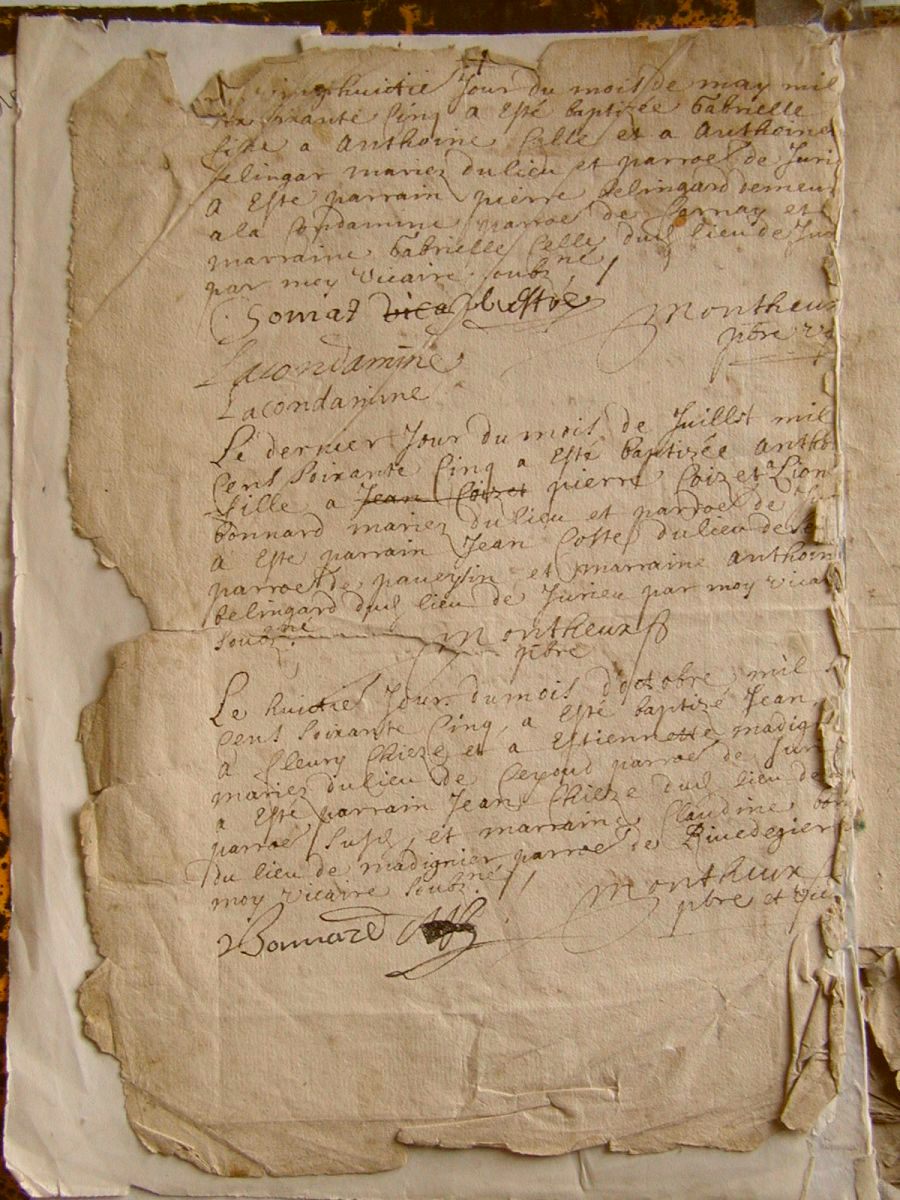 huictie Jour du mois de may mil
soixante Cinq a Esté baptizée Gabrielle
fille a Anthoine Celle et a Anthoine
belingar mariez du lieu et parroe de Juri
a Este parrain pierre belingard demeur
a la Condamine parroe de Cernay et
marraine Gabrielle Celle dud lieu de Ju
par moy vicaire soubzne
Somat vica
Montheux
pbre
Lacondamine
Lacondamine
Le dernier Jour du mois de Juillst mil
Cens soixante Cinq a Esté baptizée Antho
fille a Jean Coizet pierre Coizet a Lion
bonnard mariez du lieu et parroe de
a Este parrain Jean Coste du lieu de
parroe de paveysin et marraine anthoin
belingard dud lieu de Jurieu par moy vicai
soubzné
Montheux
pbre
Le huictie Jour du mois doctobre mil
Cens soixante Cinq, a Esté baptizé Jean
a fleury Chieze et a Estiennette madig
mariez du lieu de parroe de Jur
a Esté parrain Jean Chieze dud lieu de
parroe susd, et marraine Claudine bon
du lieu de madignier parroe de Rivedegier
moy vicaire soubzné
Montheux
pbre et vic
Bonnard